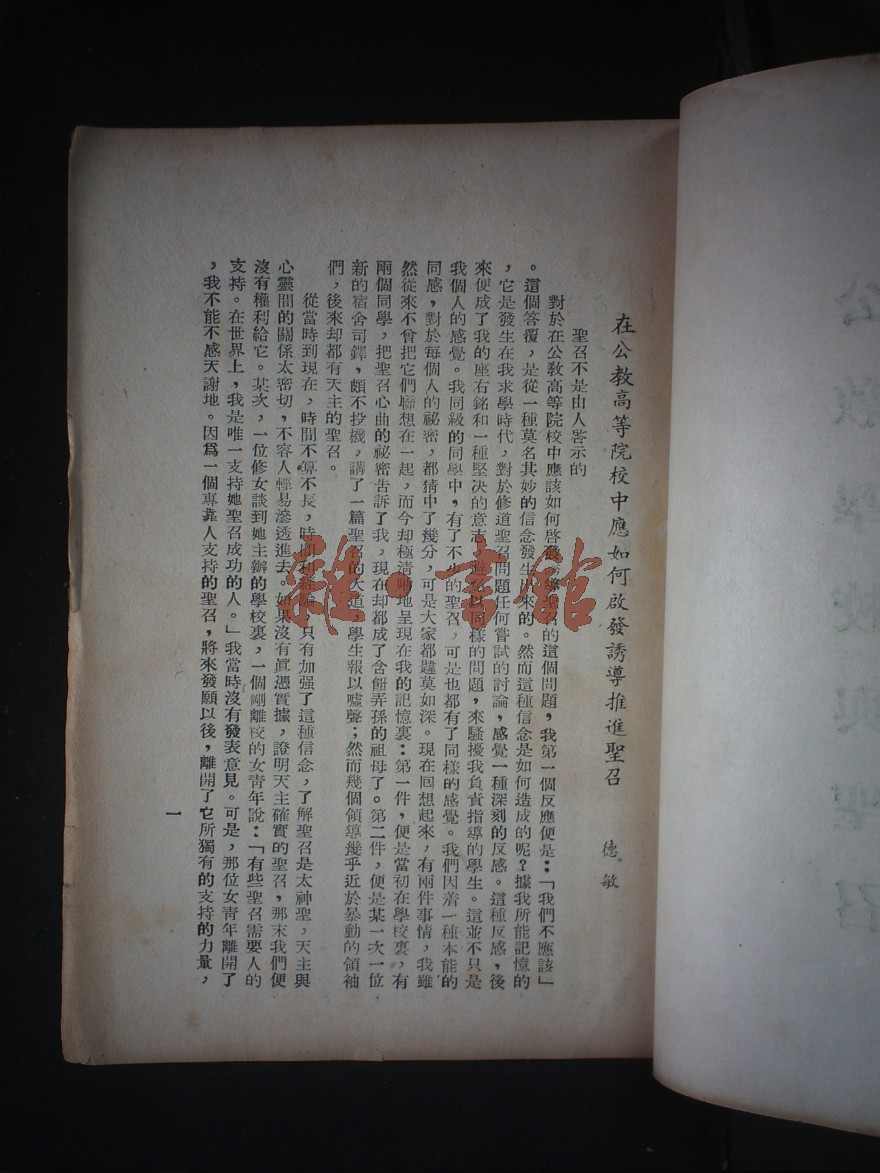 在公教高等院校中應如何啟發誘導推進聖召
德敏
聖召不是由人啓示的
對於在公教高等院校中應該如何啓發 聖召的這個問題，我第一個反應便是：「我們不應該」
。這個答覆，是從一種莫名其妙的信念發生出來的。然而這種信念是如何造成的呢？據我所能記憶的
，它是發生在我求學時代，對於修道聖召問題任何嘗試的討論，感覺一種深刻的反感。這種反感，後
來便成了我的座右銘和一種堅决的意志， 同樣的問題，來騷擾我負責指導的學生。這並不只是
我個人的感覺。我同級的同學中，有了不少的聖召，可是也都有了同樣的感覺。我們因着一種本能的
同感，對於每個人的祕密，都猜中了幾分，可是大家都諱莫如深。現在回想起來，有兩件事情，我雖
然從來不曾把它們聯想在一起，而今却極清晰地呈現在我的記憶裏：第一件，便是當初在學校裏，有
兩個同學，把聖召心曲的祕密告訴了我，現在却都成了含飴弄孫的祖母了。第二件，便是某一次一位
新的宿舍司鐸，頗不投機，講了一篇聖召的大道，學生報以噓聲；然而幾個領導幾乎近於暴動的領袖
們，後來却都有天主的聖召。
從當時到現在，時間不算不長，時間和經驗，只有加强了這種信念，了解聖召是太神聖，天主與
心靈間的關係太密切，不容人輕易滲透進去。如果沒有眞憑實據，證明天主確實的聖召，那末我們便
沒有權利給它。某次，一位修女談到她主辦的學校裏，一個剛離校的女青年說：「有些聖召需要人的
支持。在世界上，我是唯一支持她聖召成功的人。」我當時沒有發表意見。可是，那位女青年離開了
，我不能不感天謝地。因爲一個專靠人支持的聖召，將來發願以後，離開了它所獨有的支持的力量，
一
雜·書館